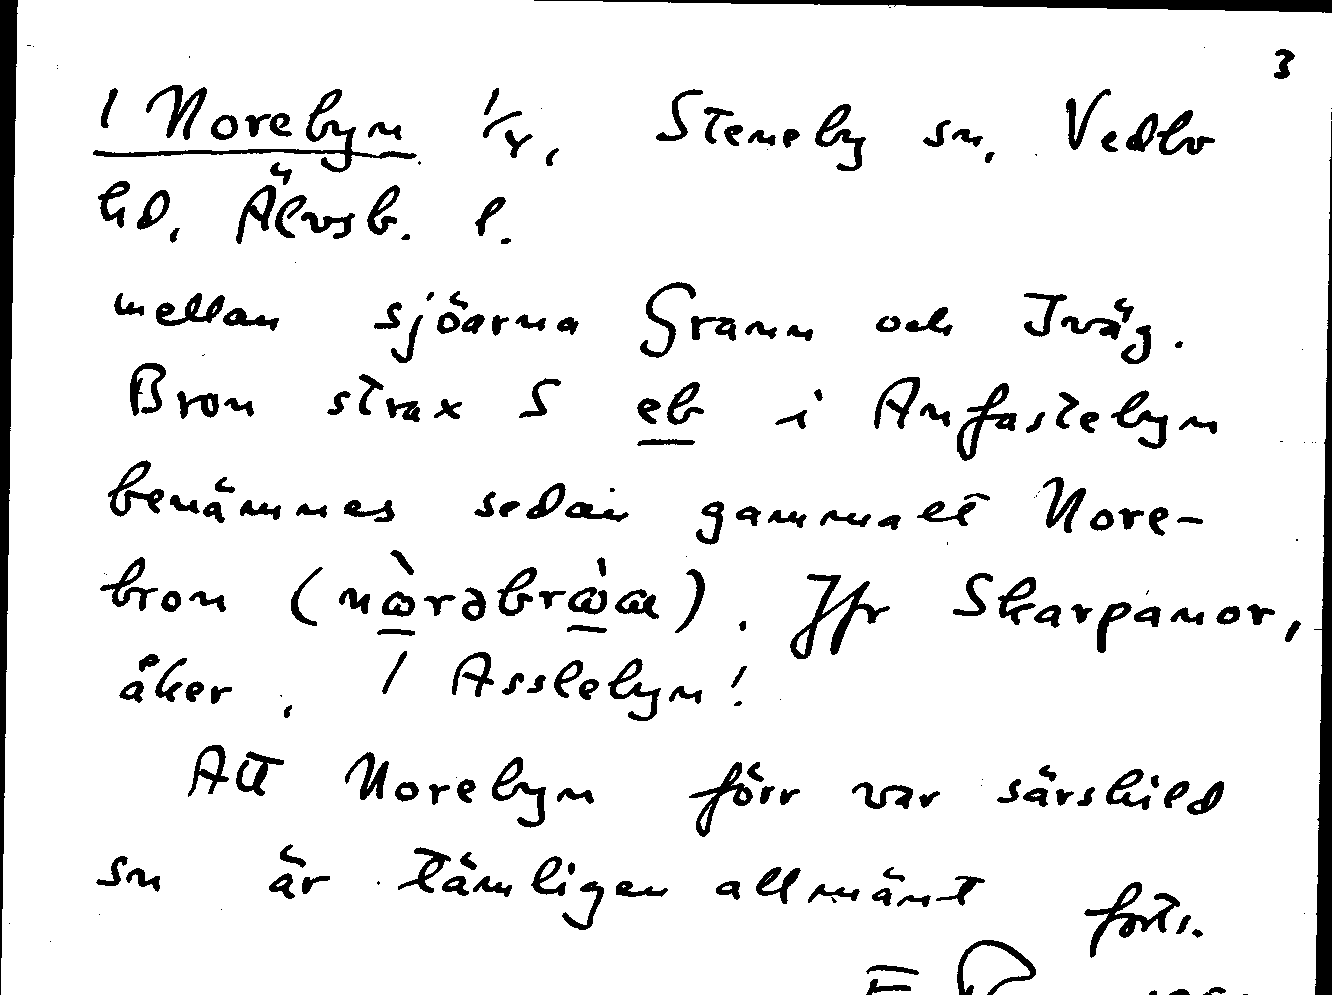 3
1 Norebyn 1/4, Steneby sn, Vedbo
hd, Älvsb. l.
mellan sjöarna Grann och Iväg.
Bron strax S eb i Anfastebyn
benämnes sedan gammalt Nore-
bron (nὼrəbrὼɷ). Jfr Skarpanor,
åker, 1 Asslebyn!
Att Norebyn förr var särskild
sn är tämligen allmänt forts.